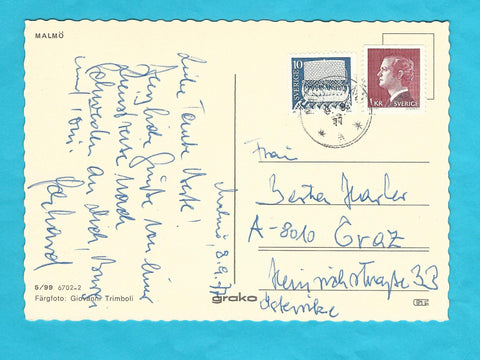 MALMÖ
Malmö, 8.9.77
Liebe Tante Herta!
Herzliche Grüße von einer
Dienstreise nach
Schweden an dich,
und Toni.
Gerhard
S/99 6702-2
Färgfoto: Giovanni Trimboli
grako
10
SVERIGE
1 KR SVERIGE
Frau
A-8010 Graz
Heinrichstraße 33
Österreich